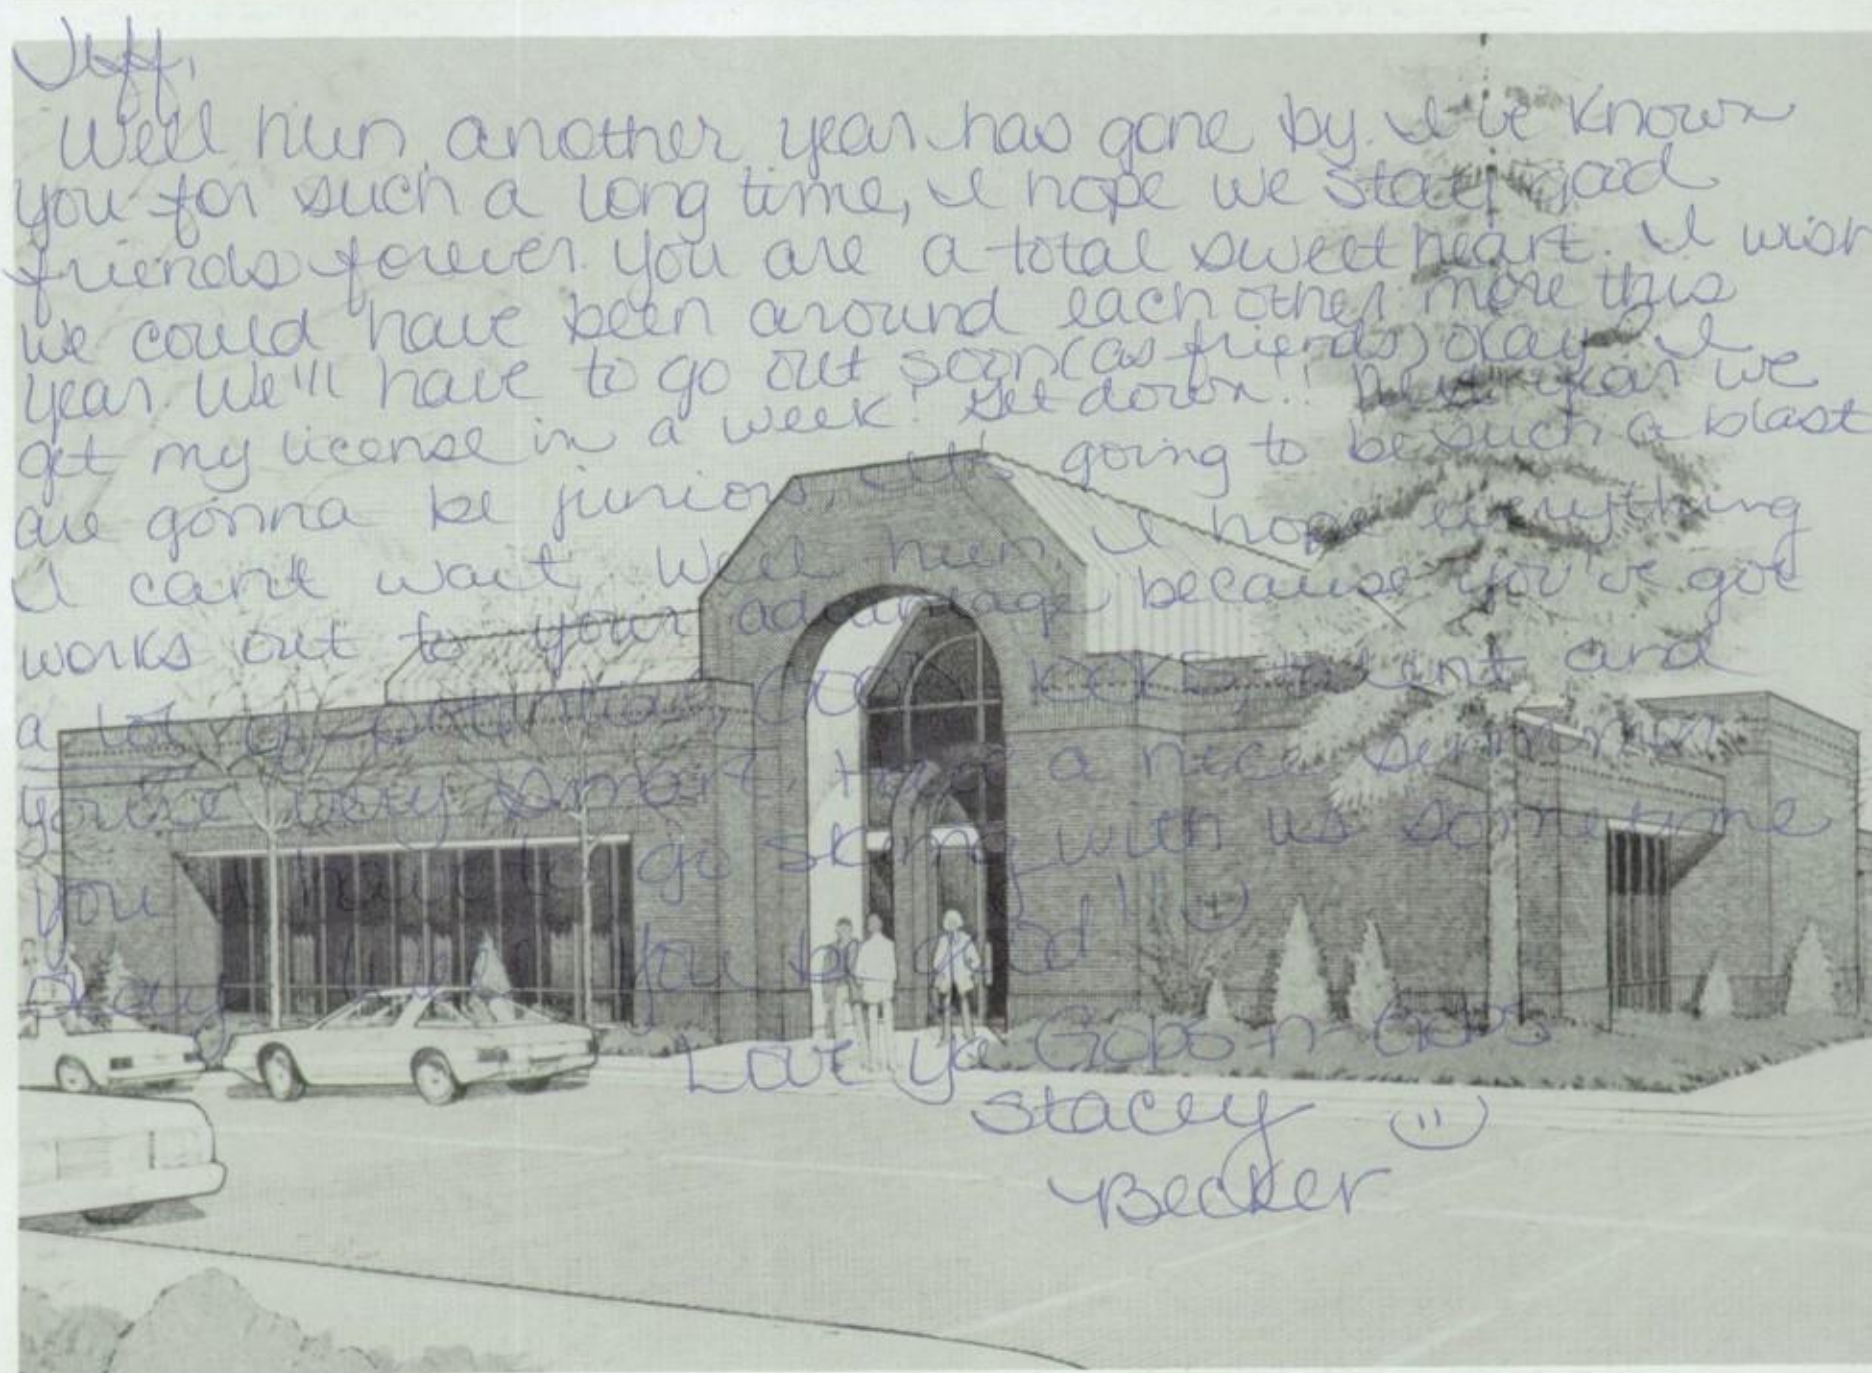 Jeff,
Well hun, another year has gone by. I've known
you for such a long time, I hope we stay good
friends forever. You are a total sweetheart. I wish
we could have been around each other more this
year. We'll have to go out soon (as friends) okay? I
get my license in a week! Get down!! Next year we
are gonna be juniors, it's going to be such a blast
I can't wait. Well hun, I hope everything
works out to your advantage because you've got
a lot of potential, good looks, talent and
you're very smart. Have a nice summer
you'll have to go skiing with us sometime
okay! you be good!!
Love ya Gobs-n-Gobs
Stacey
Becker